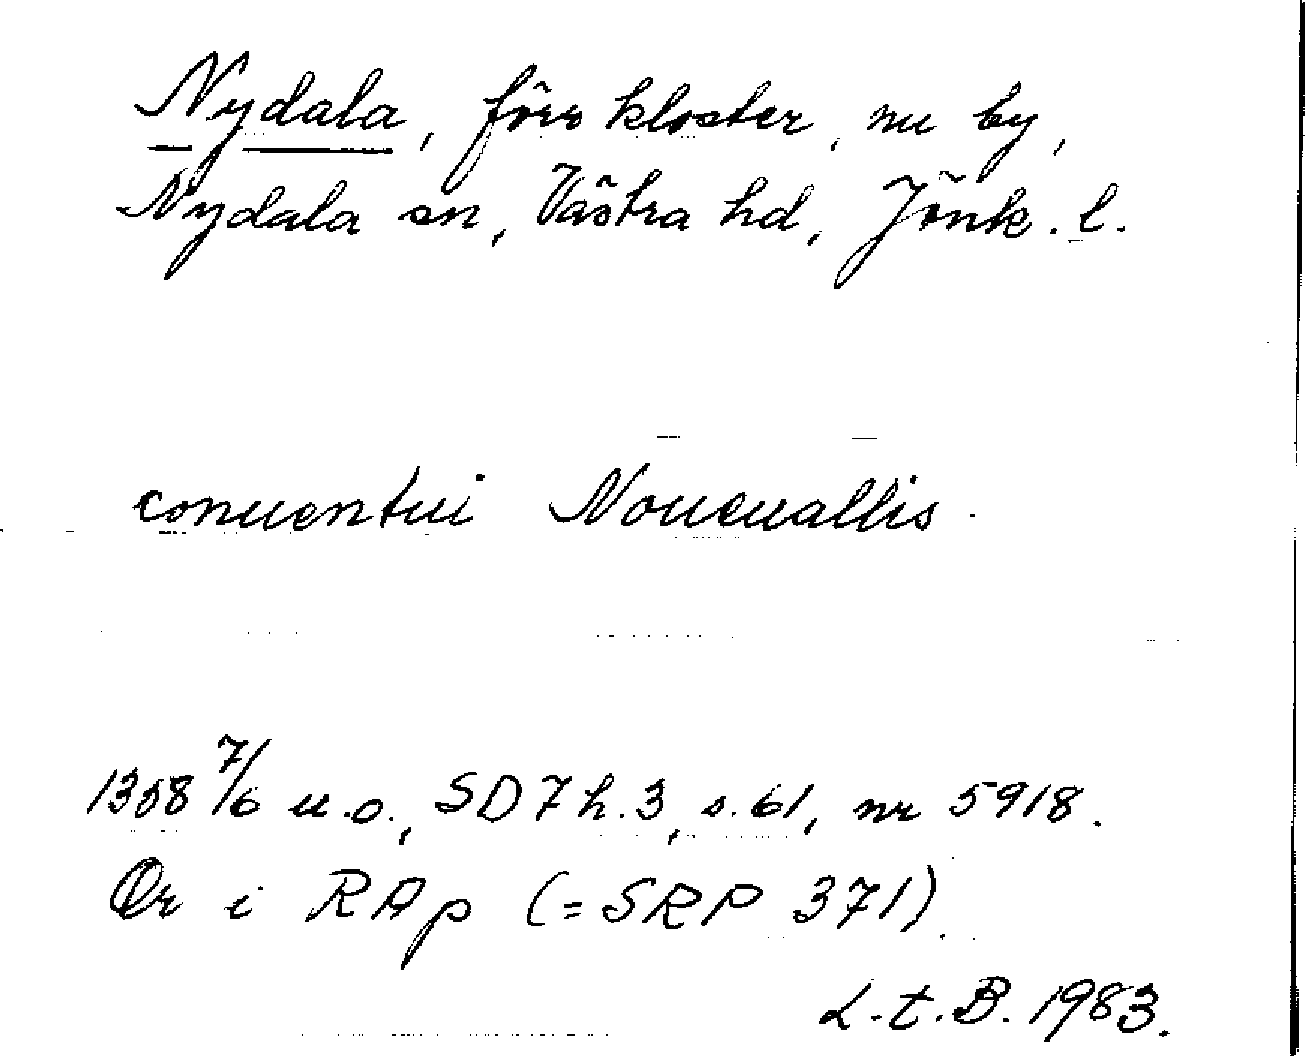 Nydala, förr kloster, nu by,
Nydala sn, Västra hd, Jönk. l.
conuentui Noueuallis.
1358 7/6 u.o., SD 7 h.3, s.61, nr 5918.
Or i RAp (=SRP 371).
L.t.B. 1983.